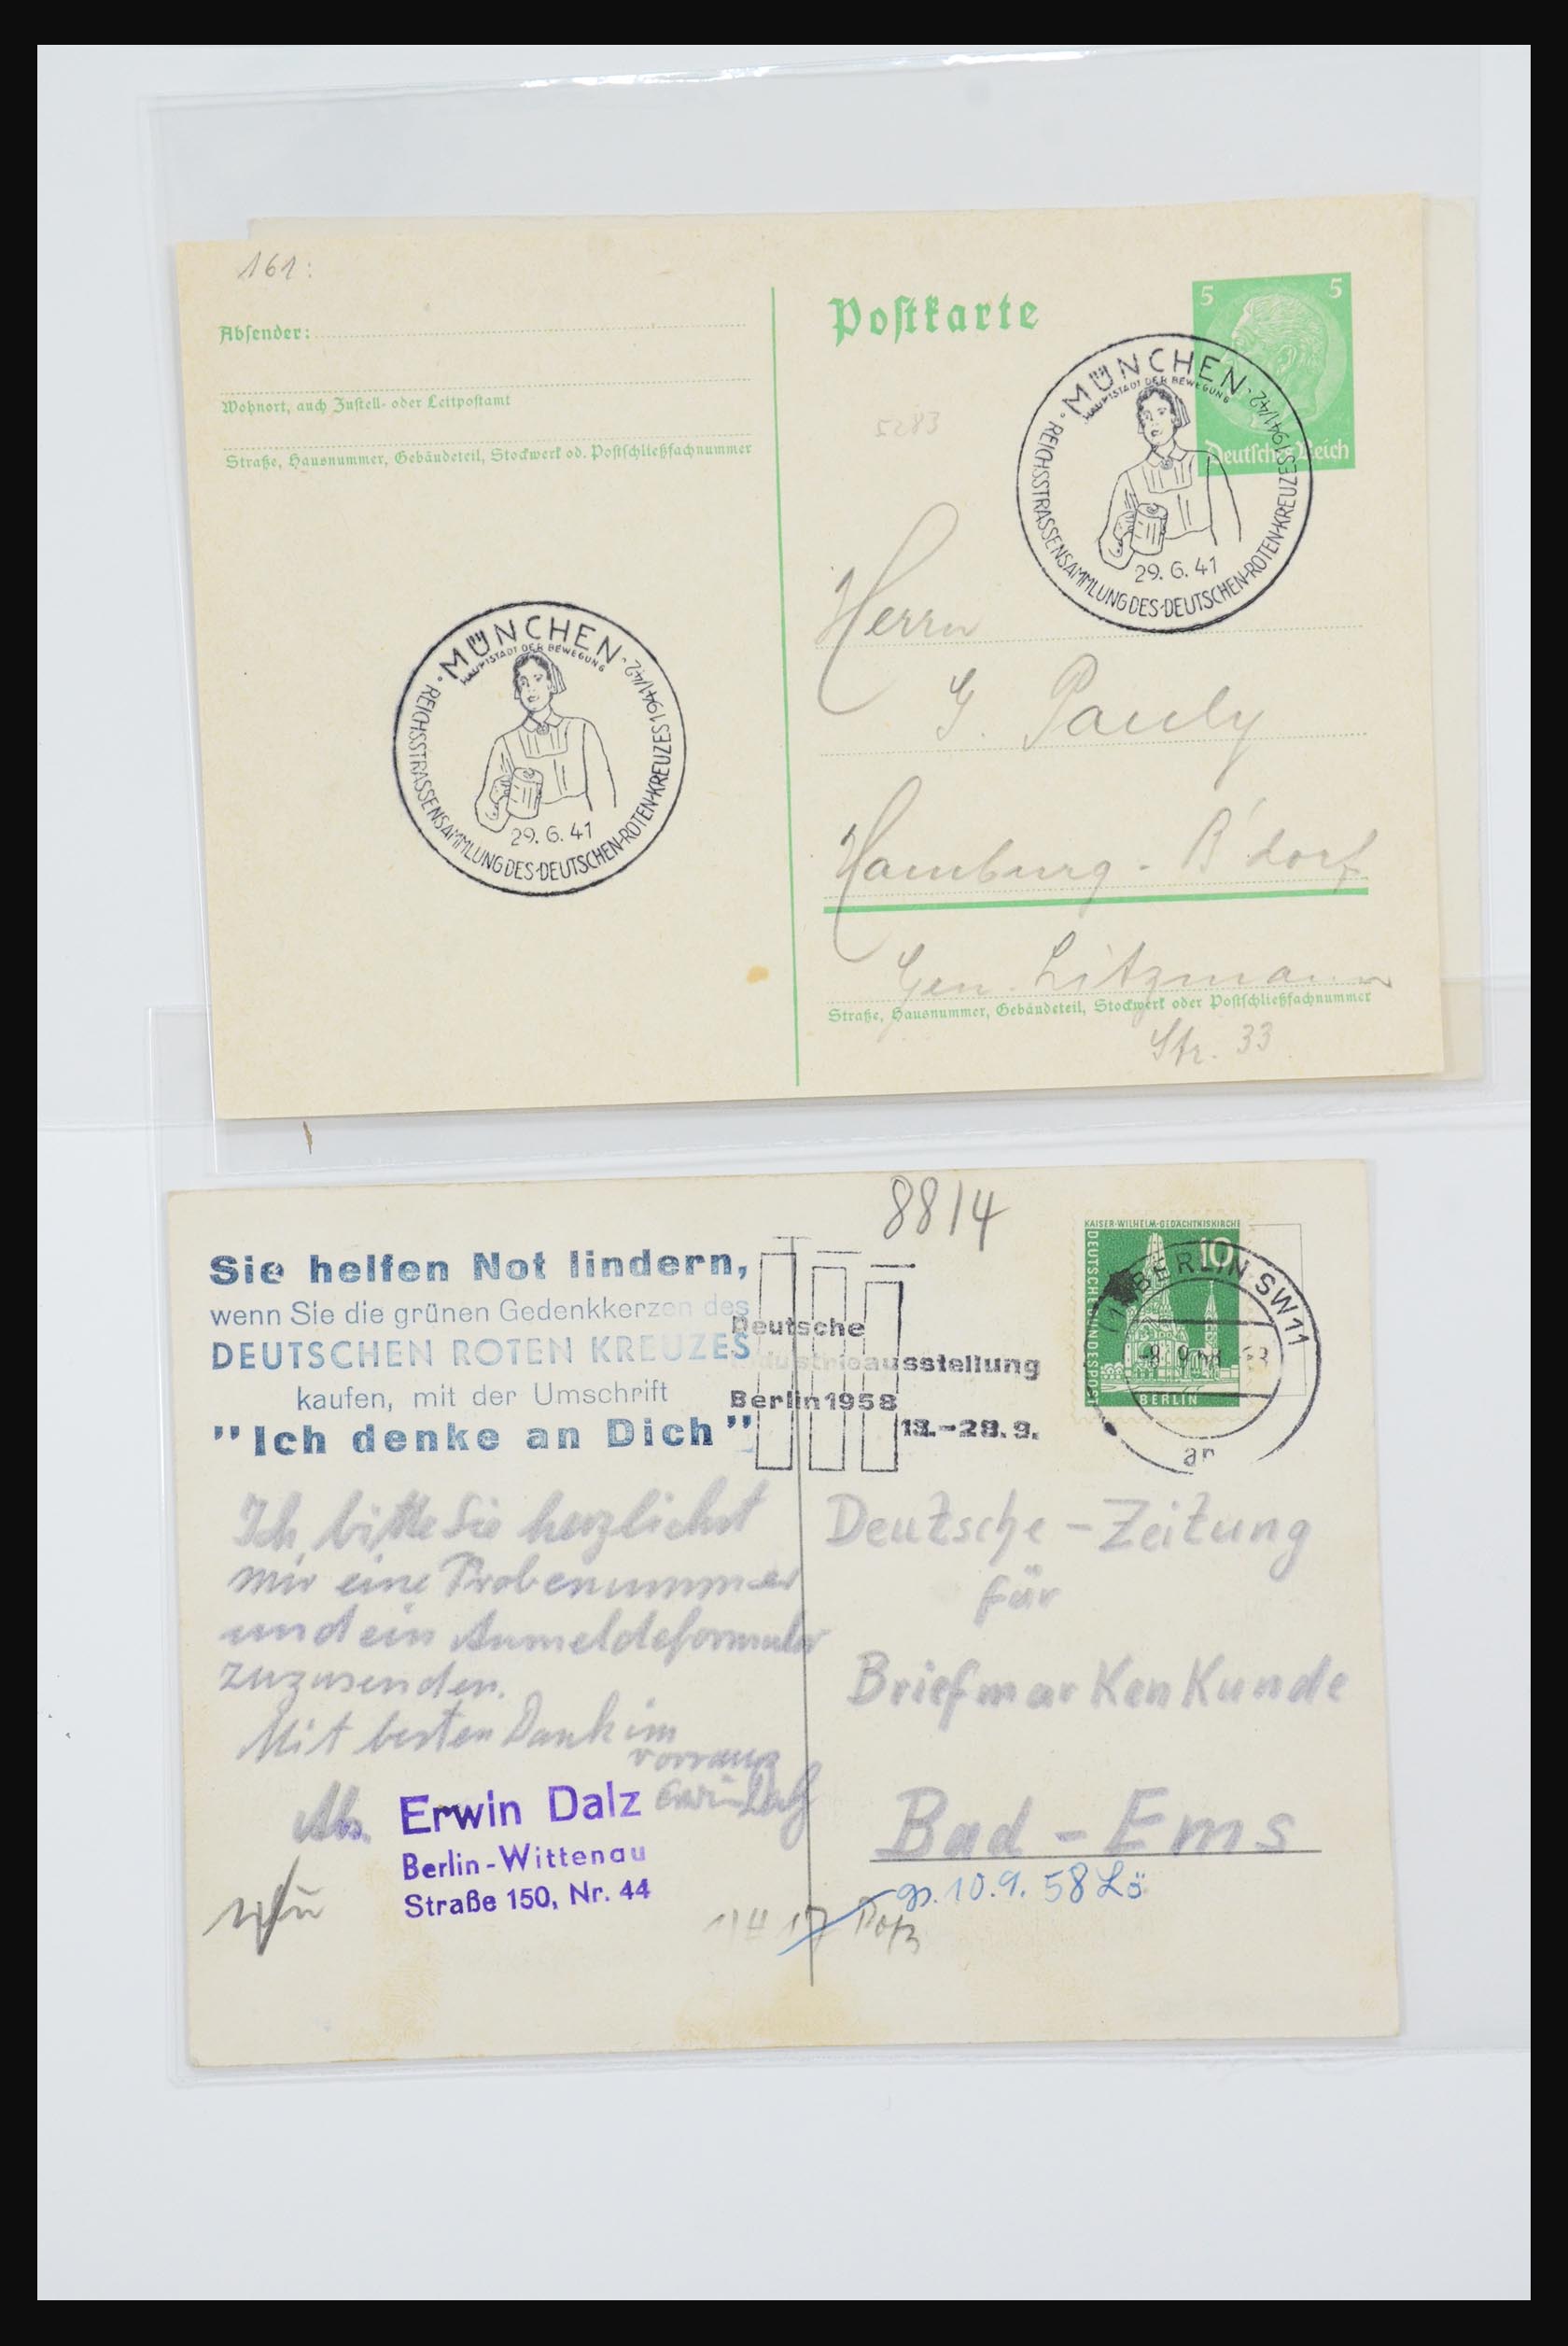 161:
Absender:
Wohnort, auch Zustell- oder Leitpostamt
Straße, Hausnummer, Gebäudeteil, Stockwerk od. Postschließfachnummer
MÜNCHEN
HAUPTSTADT DER BEWEGUNG
REICHSSTRASSENSAMMLUNG DES DEUTSCHEN-ROTEN-KREUZES 1941/42
29. 6. 41
Postkarte
5 5
Deutsches Reich
MÜNCHEN
HAUPTSTADT DER BEWEGUNG
REICHSSTRASSENSAMMLUNG DES DEUTSCHEN-ROTEN-KREUZES 1941/42
29. 6. 41
5283
Herrn
G. Pauly
Hamburg - B'dorf
Gen. Litzmann
Straße, Hausnummer, Gebäudeteil, Stockwerk oder Postschließfachnummer
Str. 33
8814
Sie helfen Not lindern,
wenn Sie die grünen Gedenkkerzen des
DEUTSCHEN ROTEN KREUZES
kaufen, mit der Umschrift
"Ich denke an Dich"
Deutsche
Industrieausstellung
Berlin 1958
13.-28. 9.
KAISER-WILHELM-GEDÄCHTNISKIRCHE
DEUTSCHE BUNDESPOST
10
BERLIN
BERLIN SW11
ar
Ich bitte Sie herzlichst
mir eine Probenummer
und ein Anmeldeformular
zuzusenden.
Mit besten Dank im
voraus
Abs.
Erwin Dalz
Berlin-Wittenau
Straße 150, Nr. 44
Deutsche-Zeitung
für
Briefmarkenkunde
Bad-Ems
10.9.58